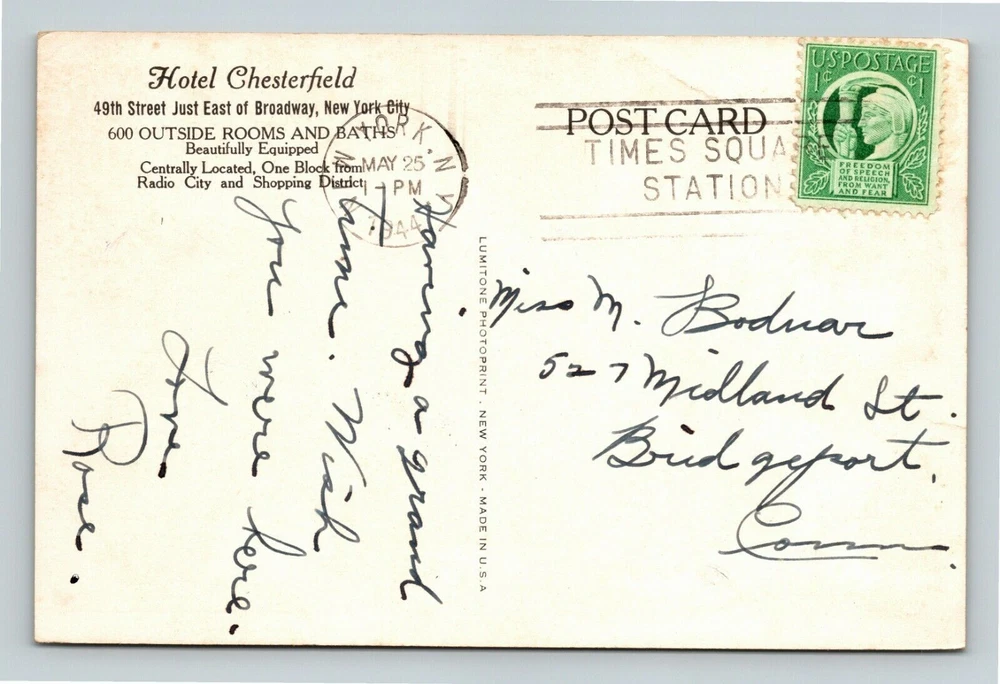 Hotel Chesterfield
49th Street Just East of Broadway, New York City
600 OUTSIDE ROOMS AND BATHS
Beautifully Equipped
Centrally Located, One Block from
Radio City and Shopping District
YORK, N.Y.
MAY 25
1 - PM
1944
POST CARD
TIMES SQUA
STATION
U.S. POSTAGE
1¢ ¢1
FREEDOM
OF SPEECH
AND RELIGION,
FROM WANT
AND FEAR
Having a grand
time. Wish
you were here.
Love
Rose.
LUMITONE PHOTOPRINT - NEW YORK - MADE IN U.S.A
Miss M. Bodnar
527 Midland St.
Bridgeport,
Conn.